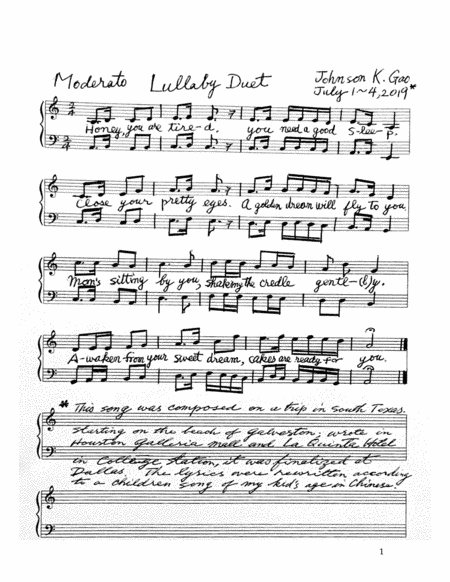 Moderato Lullaby Duet
Johnson K. Gao
July 1~4, 2019*
2/4
Honey, you are tire-d. you need a good s-lee-p.
2/4
Close your pretty eyes. A goldn dream will fly to you
Mom's sitting by you, shakeing the credle gent-(l)y.
A-waken from your sweet dream, cakes are ready for you.
* This song was composed on a trip in South Texas.
starting on the beach of Galveston; wrote in
Houston Galleria mall and La Quinta Hotel
in College Station, it was finalized at
Dallas. The lyrics were rewritten according
to a children song of my kid's age in Chinese.
1